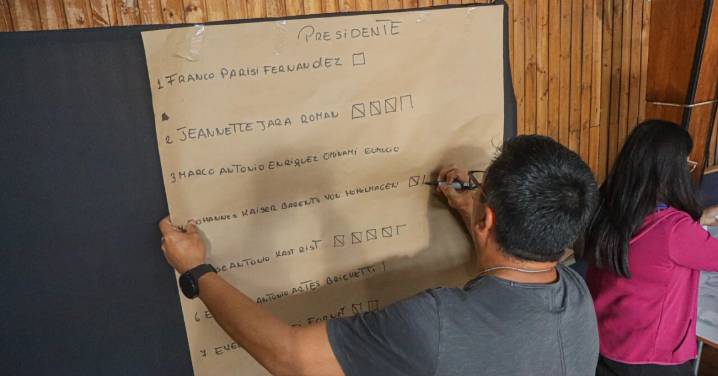 PRESIDENTE
1 FRANCO PARISI FERNANDEZ
2 JEANNETTE JARA ROMAN
3 MARCO ANTONIO ENRIQUEZ OMINAMI GUMUCIO
JOHANNES KAISER BARENTS VON HOHENHAGEN
ANTONIO KAST RIST
6 E ANTONIO ARTES BRICHETTI
7 EVE